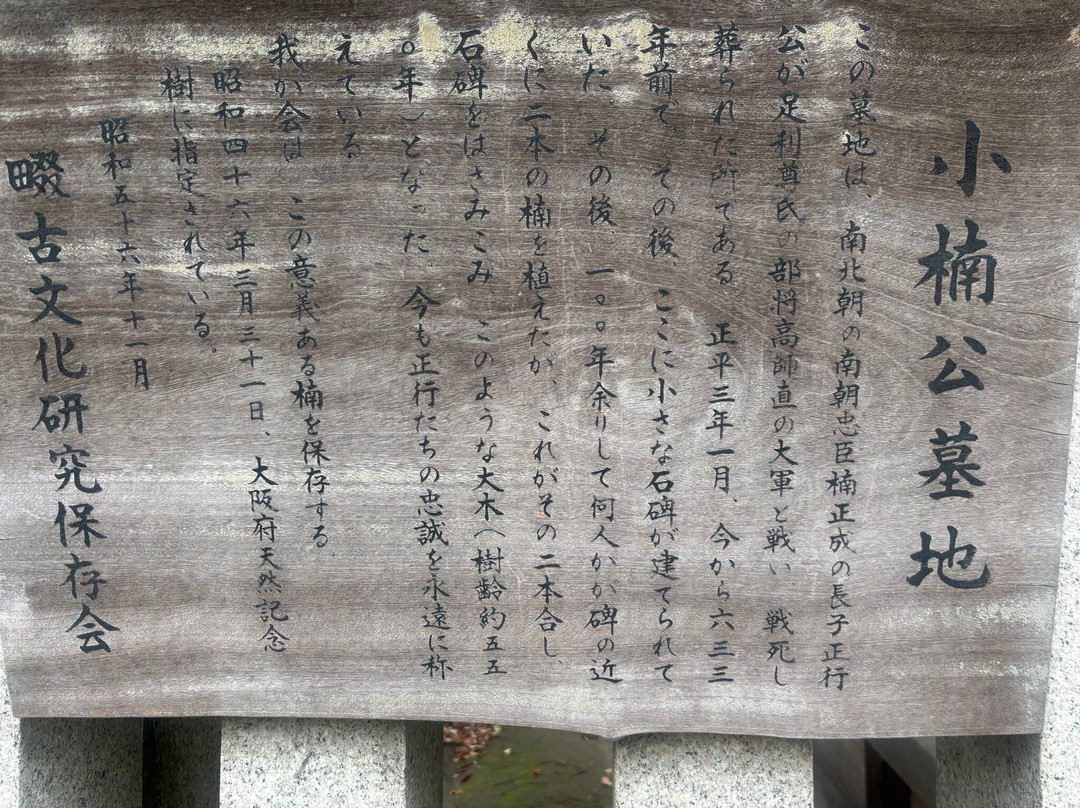 小楠公墓地
この墓地は、南北朝の南朝忠臣楠正成の長子正行
公が足利尊氏の部将高師直の大軍と戦い 戦死し
葬られた所である 正平三年一月、今から六三三
年前で、その後、ここに小さな石碑が建てられて
いた。その後、一〇〇年余りして何人かが碑の近
くに二本の楠を植えたが、これがその二本合し、
石碑をはさみこみ、このような大木へ樹齢約五五
〇年）となった。今も正行たちの忠誠を永遠に称
えている
我が会は この意義ある楠を保存する
昭和四十六年三月三十一日、大阪府天然記念
樹に指定されている。
昭和五十六年十一月
畷古文化研究保存会